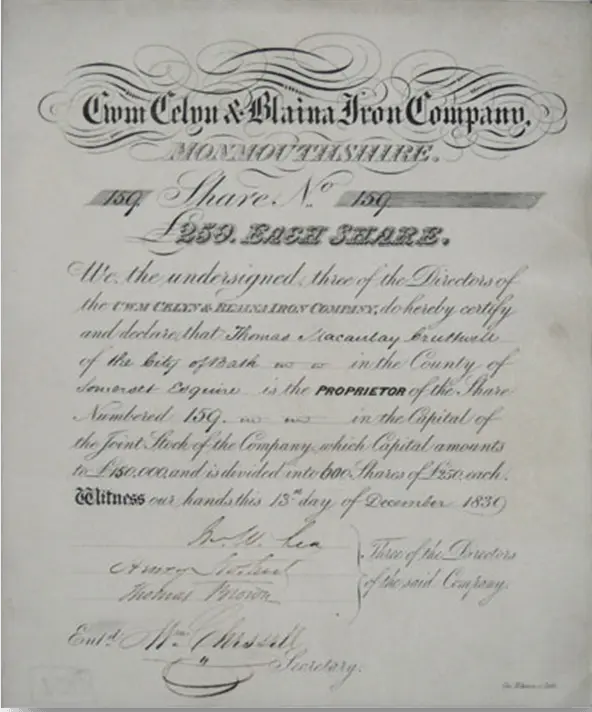 Cwm Celyn & Blaina Iron Company,
MONMOUTHSHIRE.
159 Share No. 159
£250. EACH SHARE.
We, the undersigned, three of the Directors of
the CWM CELYN & BLAINA IRON COMPANY, do hereby certify
and declare, that Thomas Macaulay Cruttwell
of the City of Bath in the County of
Somerset Esquire is the PROPRIETOR of the Share
Numbered 159. in the Capital of
the Joint Stock of the Company, which Capital amounts
to £150,000, and is divided into 600 Shares of £250, each.
Witness our hands this 13th day of December 1839
Three of the Directors
of the said Company.
Thomas Brown
Entd. Wm
Secretary.